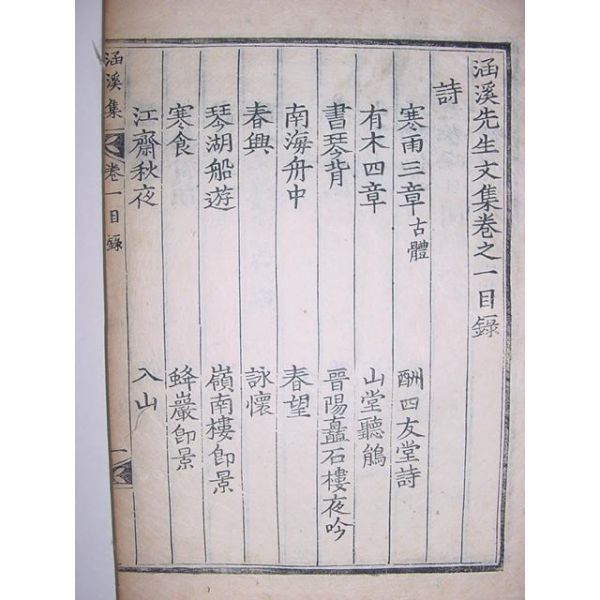 涵溪先生文集卷之一目錄
詩
寒雨三章 古體 酬四友堂詩
有木四章 山堂聽鵂
書琴背 晉陽矗石樓夜吟
南海舟中 春望
春興 詠懷
琴湖船遊 嶺南樓卽景
寒食 蜂巖卽景
江齋秋夜 入山
涵溪集 卷一目錄 一